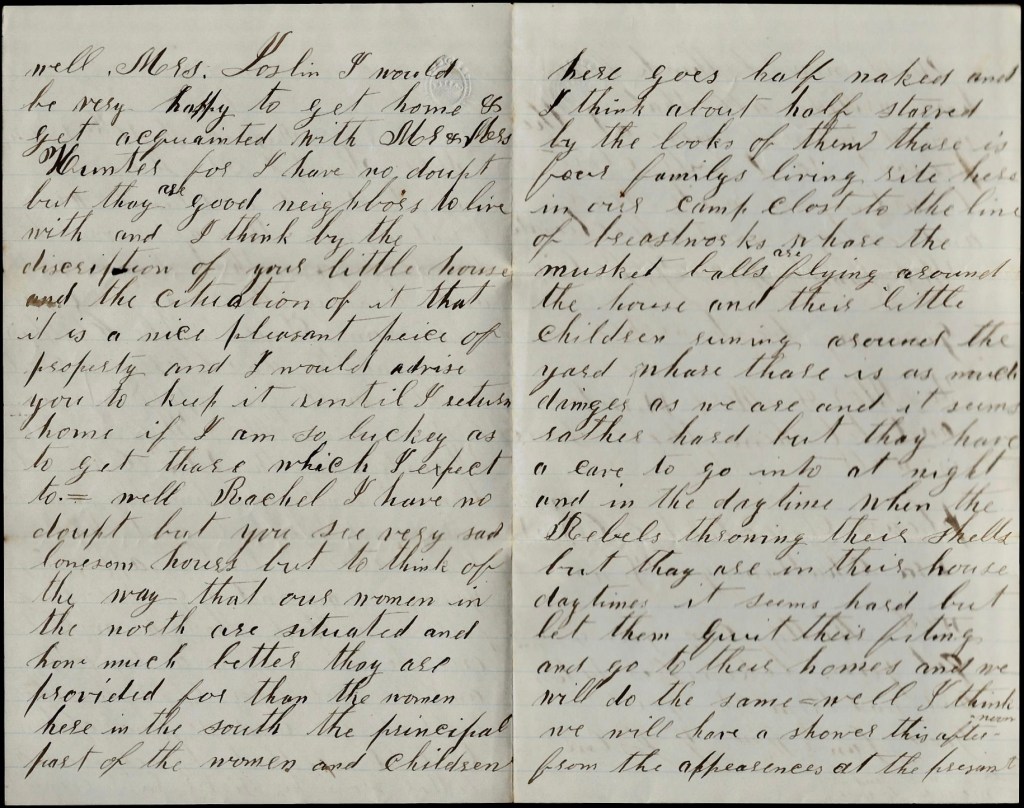 well . Mrs. Joslin I would
be very happy to get home &
get acquainted with Mr & Mrs
Hunter for I have no doubt
but thay are good neighbors to live
with and I think by the
discription of your little house
and the cituation of it that
it is a nice pleasant peice of
property and I would advise
you to keep it until I return
home if I am so luckey as
to get thare which I expect
to.= well Rachel I have no
doupt but you see very sad
lonesom hours but to think of
the way that our women in
the north are situated and
how much better thay are
provided for than the women
here in the south the principal
part of the women and children
here goes half naked and
I think about half starved
by the looks of them thare is
four familys living rite here
in our camp clost to the line
of breastworks whare the
musket balls are flying around
the house and their little
children runing around the
yard whare thare is as much
dainger as we are and it seems
rather hard but thay have
a cave to go into at night
and in the daytime when the
Rebels throwing their shells
but thay are in their house
daytimes it seems hard but
let them quit their fiting
and go to their homes and we
will do the same = well I think
we will have a shower this afternoon
from the appearences at the presant